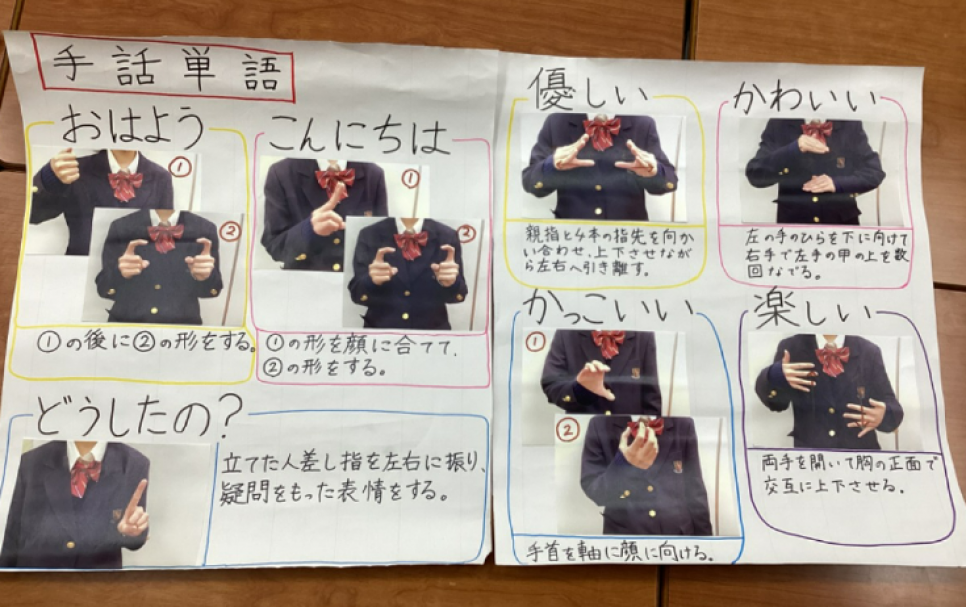 手話単語
おはよう
①
②
①の後に②の形をする。
こんにちは
①
②
①の形を顔に合てて、
②の形をする。
どうしたの？
立てた人差し指を左右に振り、
疑問をもった表情をする。
優しい
親指と4本の指先を向か
い合わせ、上下させなが
ら左右へ引き離す。
かわいい
左の手のひらを下に向けて
右手で左手の甲の上を数
回なでる。
かっこいい
①
②
手首を軸に顔に向ける。
楽しい
両手を開いて胸の正面で
交互に上下させる。